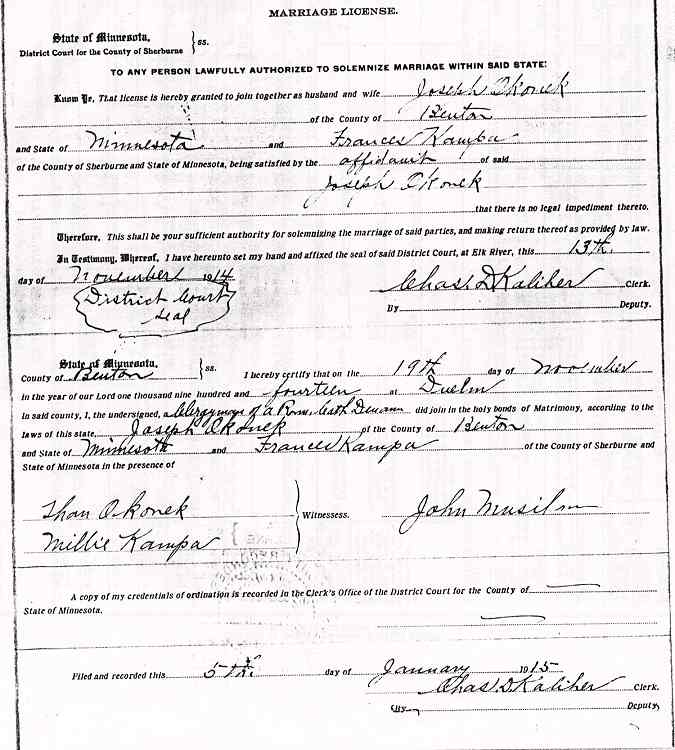 MARRIAGE LICENSE.
State of Minnesota, } ss.
District Court for the County of Sherburne
TO ANY PERSON LAWFULLY AUTHORIZED TO SOLEMNIZE MARRIAGE WITHIN SAID STATE:
Know Ye, That license is hereby granted to join together as husband and wife Joseph Okonek
of the County of Benton
and State of Minnesota and Frances Kampa
of the County of Sherburne and State of Minnesota, being satisfied by the affidavit of said
Joseph Okonek
that there is no legal impediment thereto.
Therefore, This shall be your sufficient authority for solemnizing the marriage of said parties, and making return thereof as provided by law.
In Testimony, Whereof, I have hereunto set my hand and affixed the seal of said District Court, at Elk River, this 13th.
day of November 1914
Chas. D Kaliher Clerk.
District Court
Seal
By Deputy.
State of Minnesota, } ss.
County of Benton
I hereby certify that on the 19th day of November
in the year of our Lord one thousand nine hundred and fourteen at Duelm
in said county, I, the undersigned, a Clergyman of a Rom. Cath did join in the holy bonds of Matrimony, according to the
laws of this state, Joseph Okonek of the County of Benton
and State of Minnesota and Frances Kampa of the County of Sherburne and
State of Minnesota in the presence of
Okonek
Millie Kampa
} Witnessess.
John Musil
A copy of my credentials of ordination is recorded in the Clerk's Office of the District Court for the County of
State of Minnesota.
Filed and recorded this 5th. day of January 1915
Chas. D Kaliher Clerk.
By Deputy